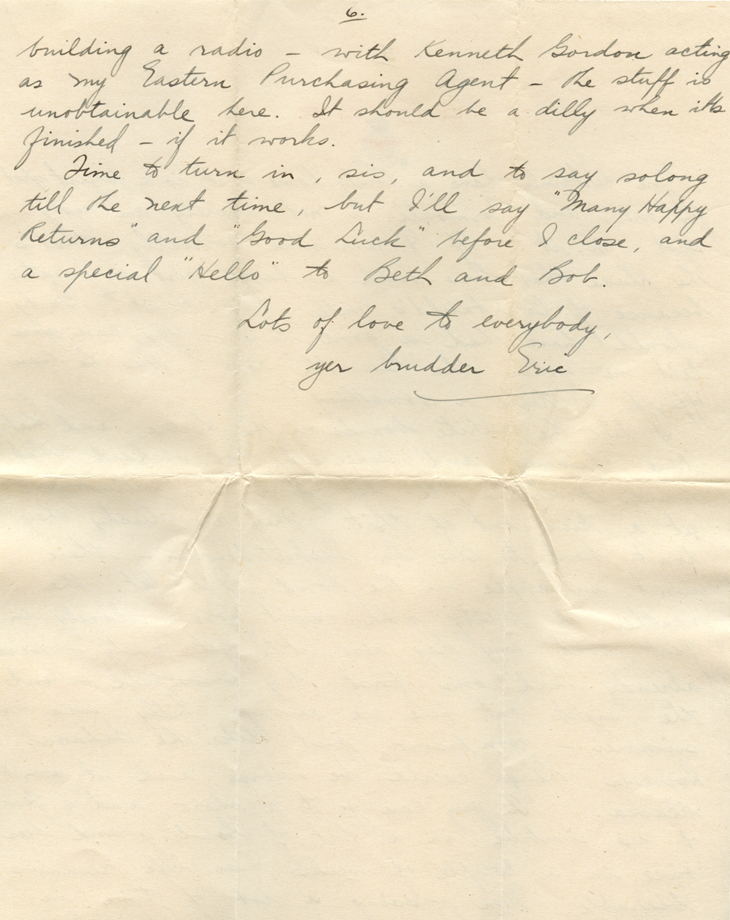 6.
building a radio – with Kenneth Gordon acting
as my Eastern Purchasing Agent – the stuff is
unobtainable here. It should be a dilly when it's
finished – if it works.
Time to turn in, sis, and to say solong
till the next time, but I'll say "Many Happy
Returns" and "Good Luck" before I close, and
a special "Hello" to Beth and Bob.
Lots of love to everybody,
yer brudder Eric